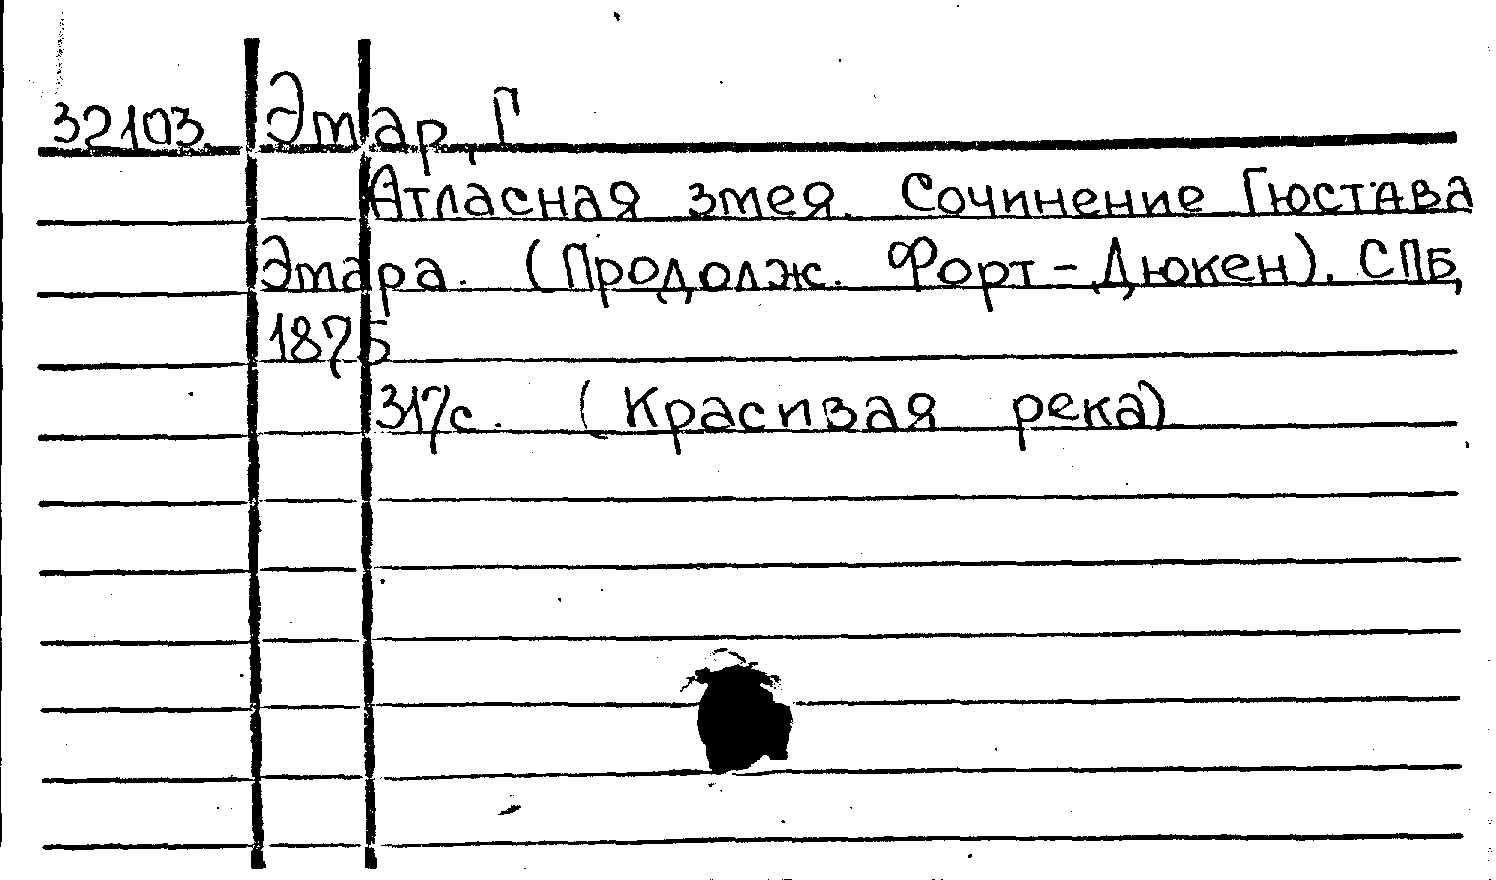 32103. Эмар, Г
Атласная змея. Сочинение Гюстава
Эмара. (Продолж. Форт-Дюкен). СПБ,
1875
317с. (Красивая река)